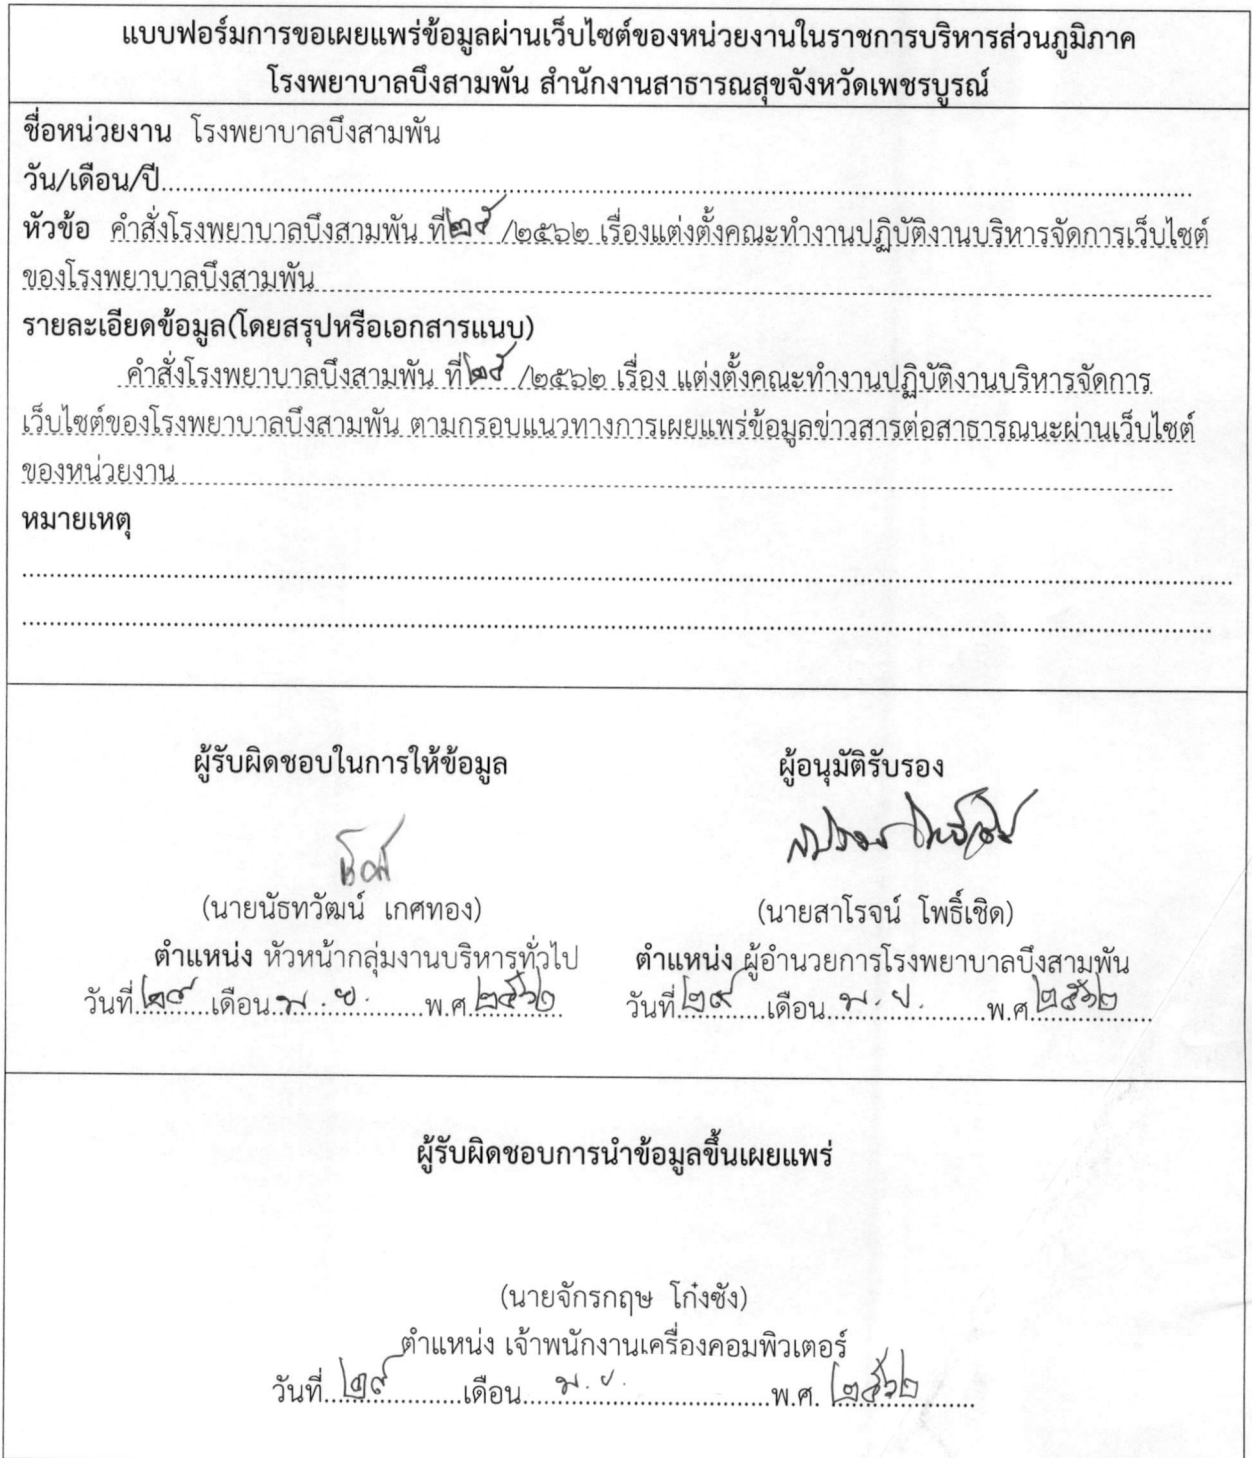 แบบฟอร์มการขอเผยแพร่ข้อมูลผ่านเว็บไซต์ของหน่วยงานในราชการบริหารส่วนภูมิภาค
โรงพยาบาลบึงสามพัน สำนักงานสาธารณสุขจังหวัดเพชรบูรณ์
ชื่อหน่วยงาน โรงพยาบาลบึงสามพัน
วัน/เดือน/ปี
หัวข้อ คำสั่งโรงพยาบาลบึงสามพัน ที่ /๒๕๖๒ เรื่องแต่งตั้งคณะทำงานปฏิบัติงานบริหารจัดการเว็บไซต์
ของโรงพยาบาลบึงสามพัน
รายละเอียดข้อมูล(โดยสรุปหรือเอกสารแนบ)
คำสั่งโรงพยาบาลบึงสามพัน ที่ /๒๕๖๒ เรื่อง แต่งตั้งคณะทำงานปฏิบัติงานบริหารจัดการ
เว็บไซต์ของโรงพยาบาลบึงสามพัน ตามกรอบแนวทางการเผยแพร่ข้อมูลข่าวสารต่อสาธารณนะผ่านเว็บไซต์
ของหน่วยงาน
หมายเหตุ
ผู้รับผิดชอบในการให้ข้อมูล ผู้อนุมัติรับรอง
(นายนัธทวัฒน์ เกศทอง) (นายสาโรจน์ โพธิ์เชิด)
ตำแหน่ง หัวหน้ากลุ่มงานบริหารทั่วไป ตำแหน่ง ผู้อำนวยการโรงพยาบาลบึงสามพัน
วันที่ ๒๙ เดือน พ.ย. พ.ศ. ๒๕๖๒ วันที่ ๒๙ เดือน พ.ย. พ.ศ. ๒๕๖๒
ผู้รับผิดชอบการนำข้อมูลขึ้นเผยแพร่
(นายจักรกฤษ โก๋งซัง)
ตำแหน่ง เจ้าพนักงานเครื่องคอมพิวเตอร์
วันที่ ๒๙ เดือน พ.ย. พ.ศ. ๒๕๖๒